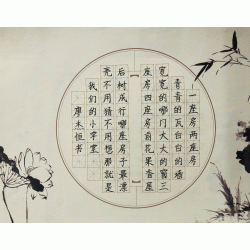 一座房两座房
青青的瓦白白的墙
宽宽的哪门大大的窗三
座房四座房前花果香屋
后树成行哪座房子最漂
亮不用猜不用想那就是
我们的小学堂
廖木恒书